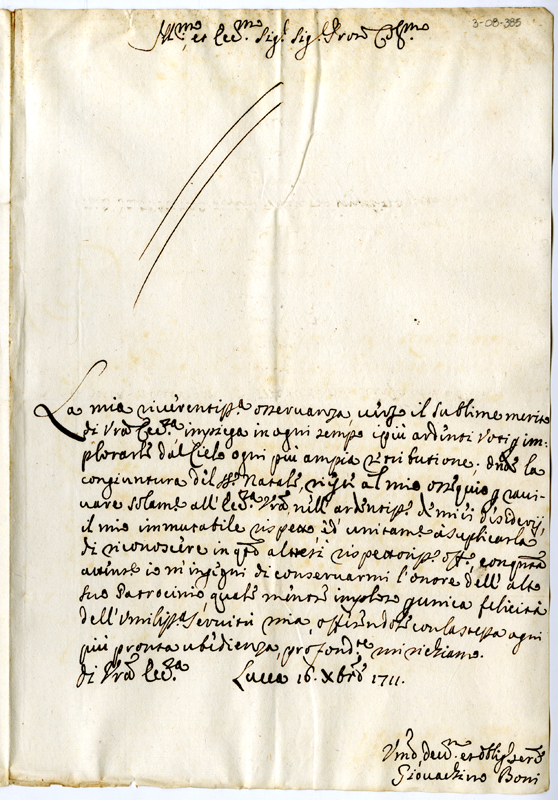 3-08-385
Ill.mo et Ecc.mo Sig.r Sig.r Pron Col.mo
La mia riverentiss.a osservanza verso il sublime merito
di Vra Ecc.za impiega in ogni tempo i più ardenti voti p im-
plorarle dal Cielo ogni più ampia retributione; la
congiuntura del SS.o Natale, al mio ossequio p
solam.e all'Ecc.za Vra nell'ardentiss.e de miei desiderij,
il mio immutabile rispetto, ed unitam.e à suplicarla
di riconoscere in q.to altresì rispettosiss.o off.o,
io m'ingegni di conservarmi l'onore dell'alto
suo Patrocinio, quale mentre imploro p unica felicità
dell'umiliss.a servitù mia, offerendole con la stessa ogni
più pronta ubidienza, profond.te mi
di Vra Ecc.za Lucca 16. Xbre 1711.
Um.o dev.o et oblig. ser.e
Giovachino Boni